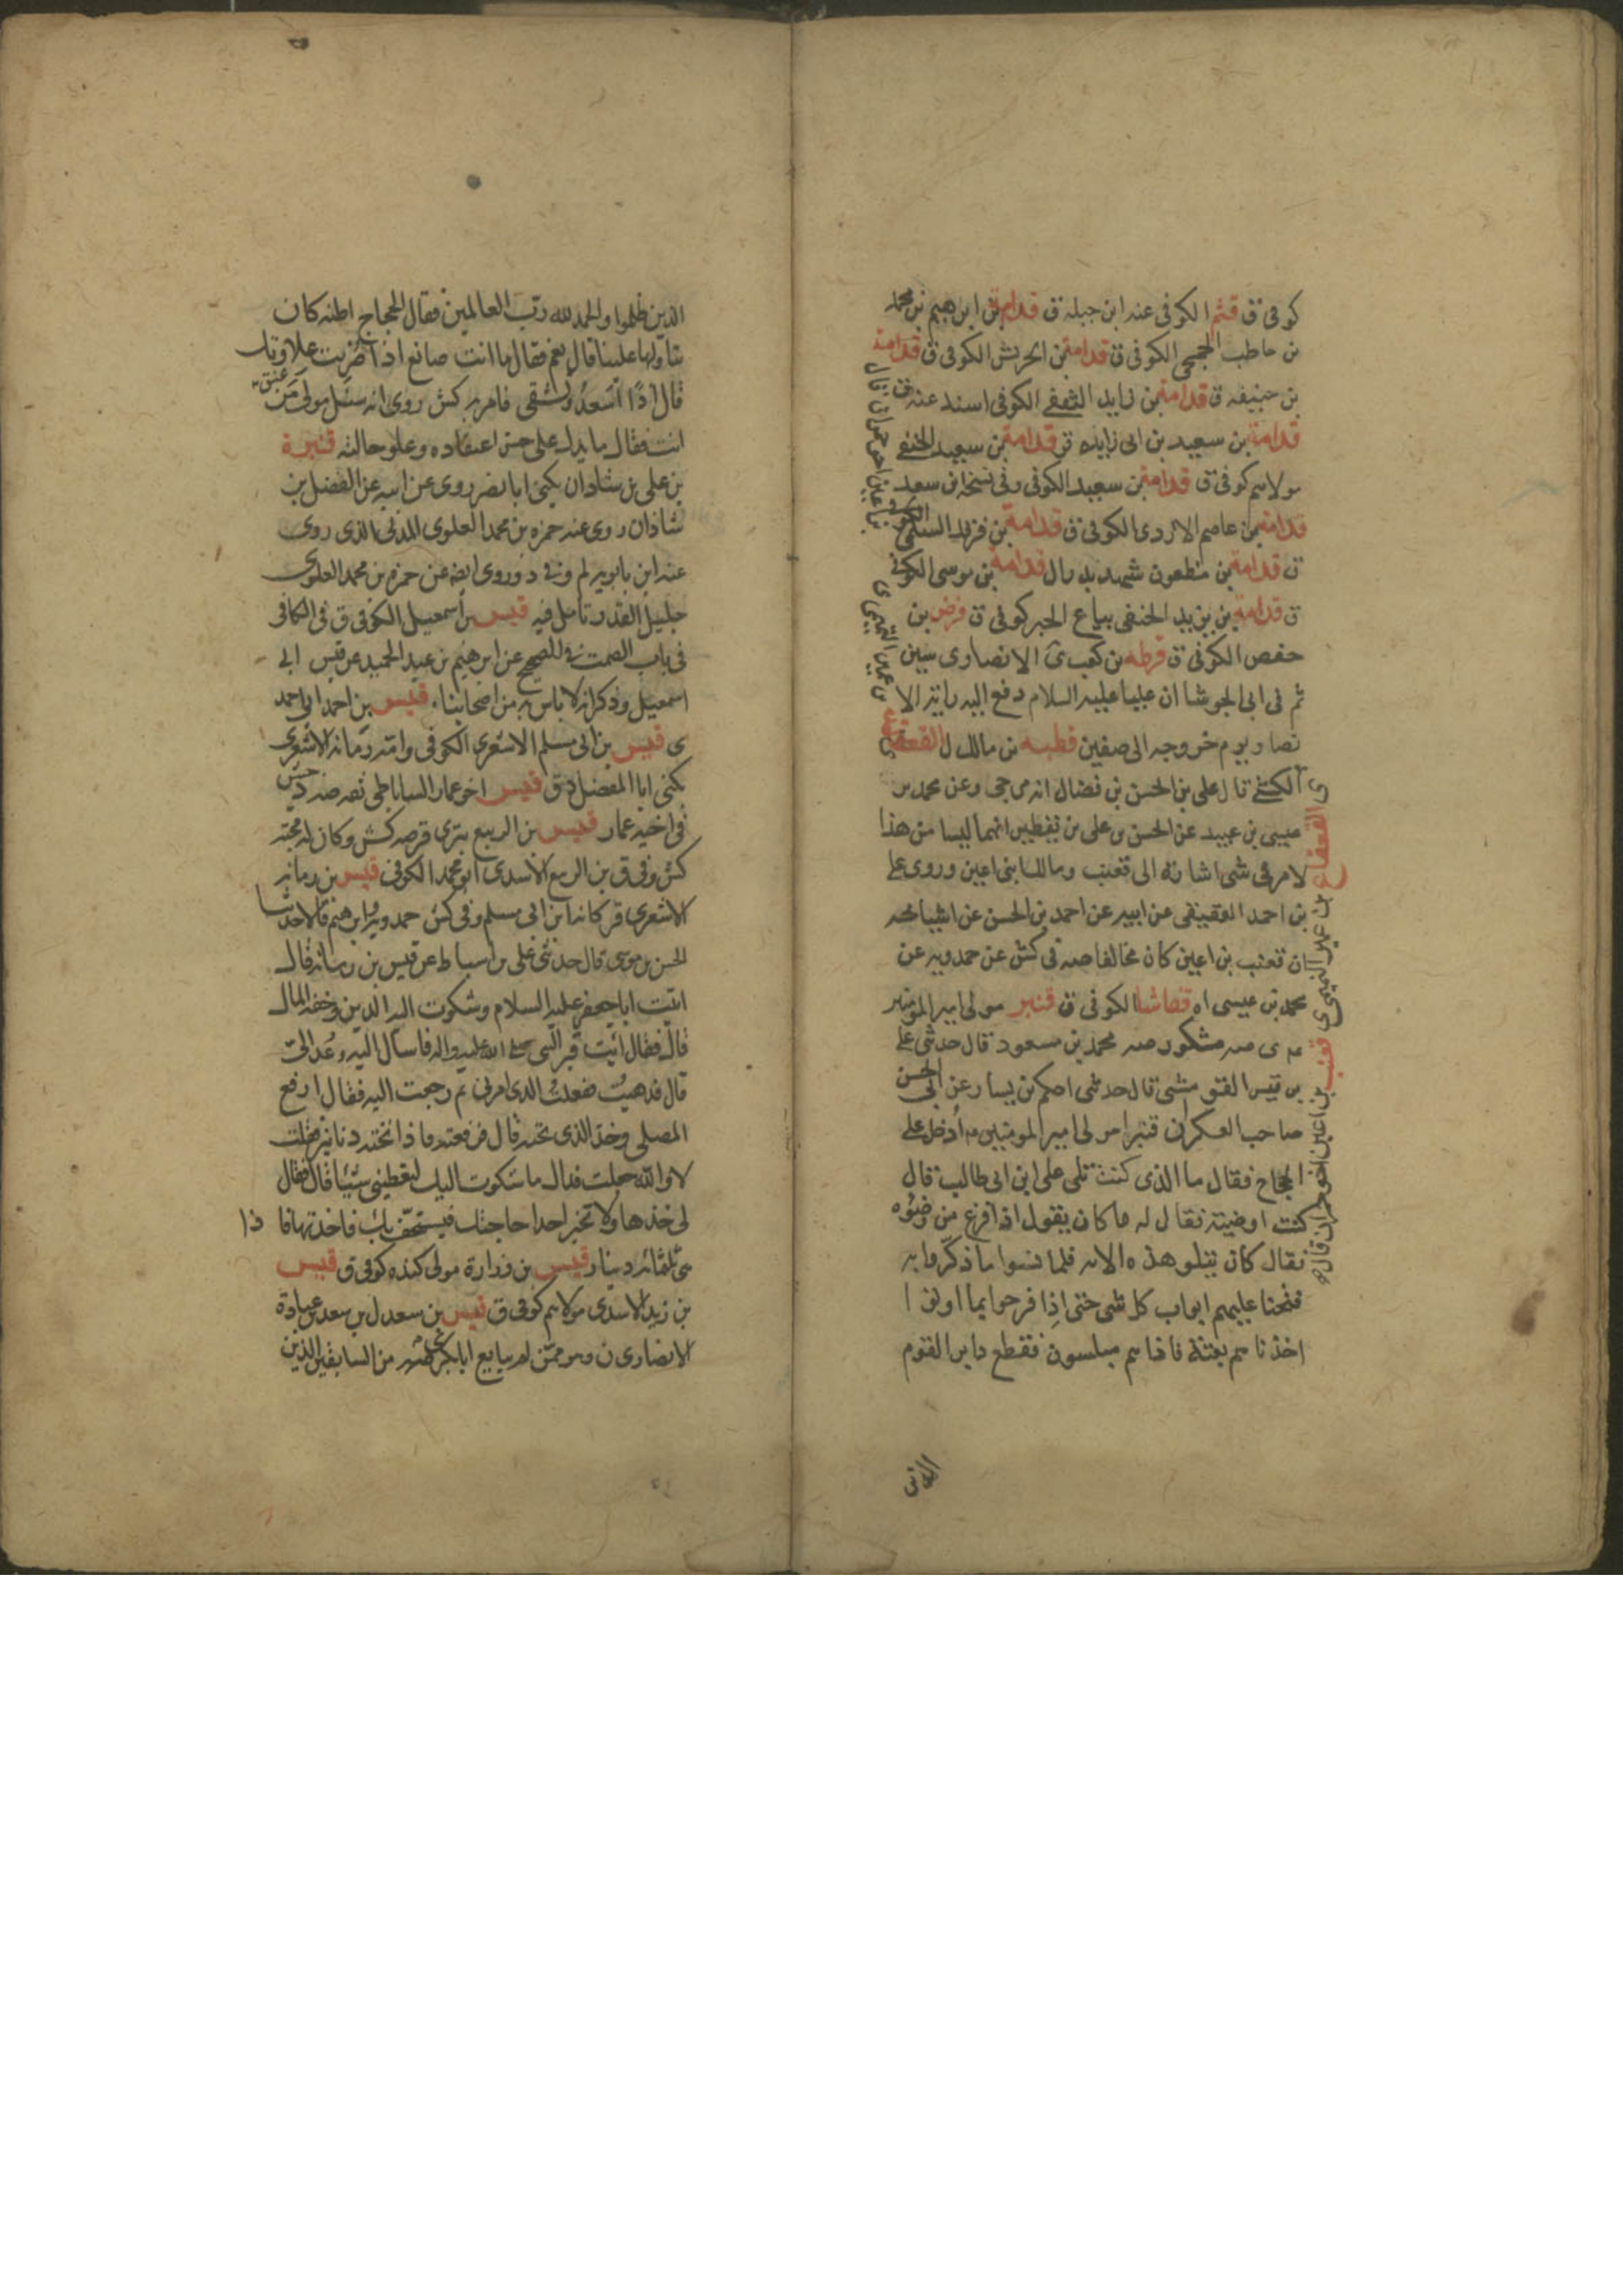 كوفى ق قثم الكوفى عنه ابن جبله ق قدامة بن ابرهيم بن محمد
بن حاطب الجمحى الكوفى ق قدامة بن الحريش الكوفى ق قدامة
بن حنيفه ق قدامة بن زايد الثقفى الكوفى اسند عنه ق
قدامة بن سعيد بن ابى زايده ق قدامة بن سعيد الحنفى
مولاهم كوفى ق قدامة بن سعيد الكوفى وفى نسخه ابن سعد
قدامة بن عاصم الازدى الكوفى ق قدامة بن فرقد السلمى الكوفى
ق قدامة بن مظعون شهد بدرا ل قدامة بن موسى الكوفى
ق قدامة بن يزيد الحنفى بياع الحبر كوفى ق قرض بن
حفص الكوفى ق قرطه بن كعب الانصارى سين
ثم فى ابى الجوشا ان عليا عليه السلام دفع اليه راية الا
نصار يوم خروجه الى صفين قطبه بن مالك ل القعقاع
الكشى قال على بن الحسن بن فضال انه مرجى وعن محمد بن
عيسى بن عبيد عن الحسن بن على بن يقطين انهما ليسا من هذا
لامر فى شى اشارة الى قعنب ومالك ابنى اعين وروى على
بن احمد العقيقى عن ابيه عن احمد بن الحسن عن اشياخه
ان قعنب بن اعين كان مخالفا صه فى كش عن حمدويه عن
محمد بن عيسى اه قماشا الكوفى ق قنبر مولى امير المومنين
مشكور صه محمد بن مسعود قال حدثنى على
بن قيس القومشى قال حدثنى احكم بن يسار عن ابى الحسن
صاحب العسكر ان قنبرا مولى امير المومنين ادخل على
الحجاج فقال ما الذى كنت تلى على ابن ابى طالب قال
كنت اوضيته فقال له ما كان يقول اذا فرغ من وضوئه
فقال كان يتلو هذه الايه فلما نسوا ما ذكروا به
فتحنا عليهم ابواب كل شى حتى اذا فرحوا بما اوتوا
اخذناهم بغتة فاذا هم مبلسون فقطع دابر القوم
القعقاع بن عمير التميمى ى قعنب بن اعين اخو حمران قال
الذين ظلموا والحمد لله رب العالمين فقال الحجاج اظنه كان
يتاولها علينا قال نعم فقال ما انت صانع اذا ضربت علاوتك
قال اذًا اسعد وتشقى فامر به كش روى انه سئل مولى من
انت فقال ما يدل على حسن اعتقاده وعلو حالته قنبرة
بن على بن شاذان يكنى ابا نصر روى عن ابيه عن الفضل بن
شاذان روى عنه حمزه بن محمد العلوى الذى روى
عنه ابن بابويه لم وفى د وروى ايضه عن حمزه بن محمد العلوى
جليل القدر تامل فيه قيس بن اسمعيل الكوفى ق فى الكافى
فى باب الصمت فى الصحيح عن ابرهيم بن عبد الحميد عن قيس ابى
اسمعيل وذكر انه لا باس به من اصحابنا قيس بن احمد ابى احمد
ى قيس بن ابى مسلم الاشعرى الكوفى وامه رمانة الاشعرى
يكنى ابا المفضل ق قيس اخو عمار الساباطى ثقه صه
فى اخيه عمار قيس بن الربيع بترى قر صه كش وكان له محبة
كش وفى ق بن الربيع الاسدى ابو محمد الكوفى قيس بن رمانه
الاشعرى قر كانه ابن ابى مسلم وفى كش حمدويه وابرهيم قالا حدثنا
الحسن بن موسى قال حدثنى على بن اسباط عن قيس بن رمانه قال
اتيت ابا جعفر عليه السلام وشكوت اليه الدين وخفة المال
قال فقال ائت قبر النبى صلى الله عليه واله فاسال اليه وعُد الىّ
قال فذهبت ففعلت الذى امرنى ثم رجعت اليه فقال ارفع
المصلى وخذ الذى تحته قال فرفعته فاذا تحته دنانير فقلت
لا والله جعلت فداك ما شكوت اليك لتعطينى شيئا قال فقال
لى خذها ولا تخبر احدا حاجتك فيستخف بك فاخذتها فا ذا
هى ثلثمائه دينار قيس بن زرارة مولى كنده كوفى ق قيس
بن زيد الاسدى مولاهم كوفى ق قيس بن سعد ل بن سعد بن عبادة
الانصارى ن وهو ممن لم يبايع ابابكر من السابقين الذين